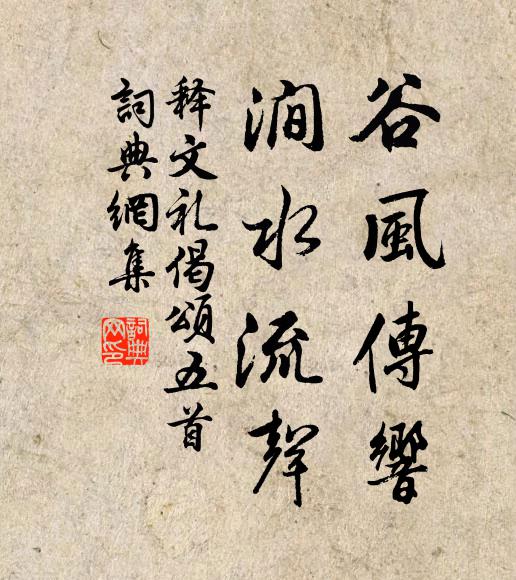 谷風傳響
澗水流聲
释文礼偈頌五首
詞典網集
詞典网印